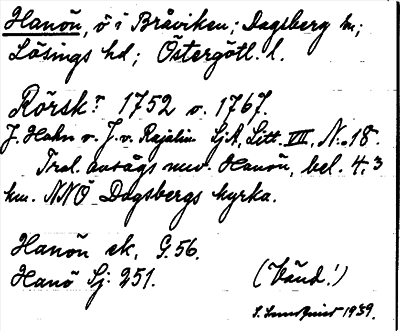 Hanön, ö i Bråviken; Dagsberg sn;
Lösings hd; Östergötl. l.
Rörsk? 1752 o. 1767.
J. Hahn o. J. v. Rajalin SjA, Litt. VIII, N:o 18.
Trol. avsågs nuv. Hanön, bel. 4.3
km. NNO Dagsbergs kyrka.
Hanön ek. G. 56.
Hanö Sj: 251. (Vänd!)
1939.